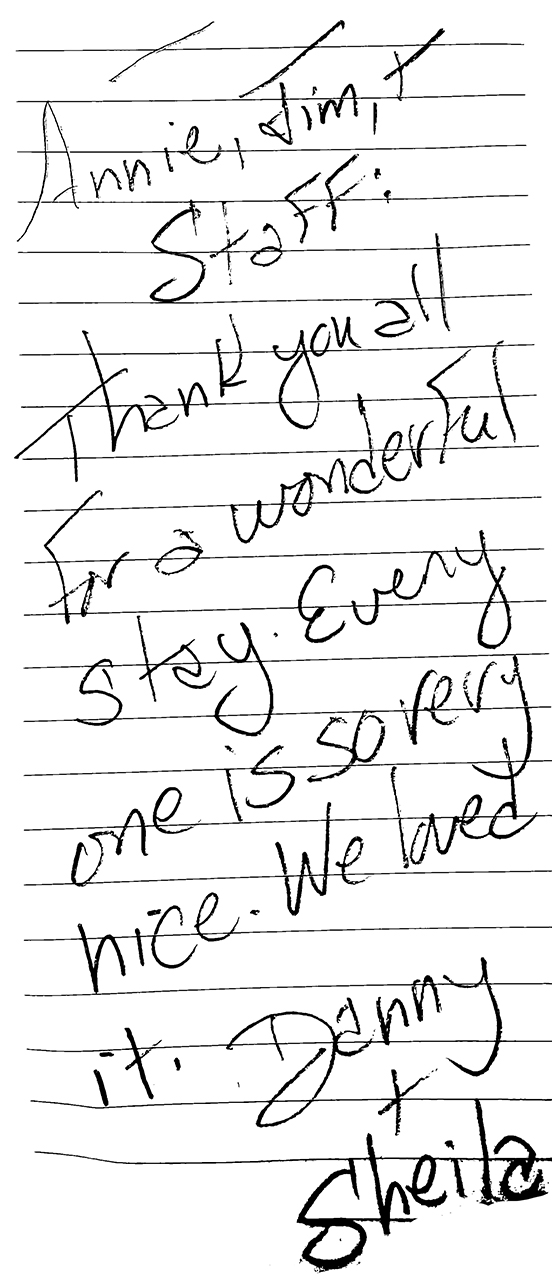 Annie, Jim, +
Staff:
Thank you all
for a wonderful
stay. Every
one is so very
nice. We loved
it. Danny
+
Sheila